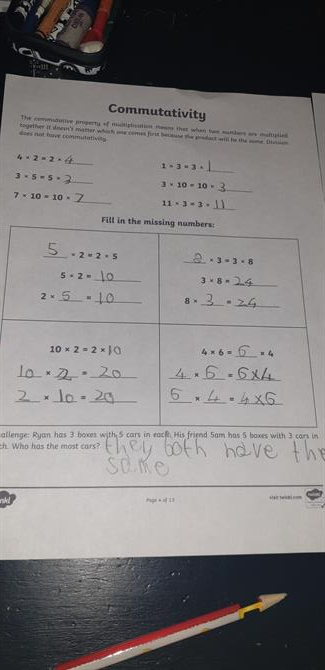 Commutativity
The commutative property of multiplication means that when two numbers are multiplied
together it doesn't matter which one comes first because the product will be the same. Division
does not have commutativity.
4 × 2 = 2 × 4
1 × 3 = 3 × 1
3 × 5 = 5 × 3
3 × 10 = 10 × 3
7 × 10 = 10 × 7
11 × 3 = 3 × 11
Fill in the missing numbers:
5 × 2 = 2 × 5
8 × 3 = 3 × 8
5 × 2 = 10
3 × 8 = 24
2 × 5 = 10
8 × 3 = 24
10 × 2 = 2 × 10
4 × 6 = 6 × 4
10 × 2 = 20
4 × 6 = 6×4
2 × 10 = 20
6 × 4 = 4×6
allenge: Ryan has 3 boxes with 5 cars in each. His friend Sam has 5 boxes with 3 cars in
ch. Who has the most cars? they both have the
same
Page 4 of 13
visit twinkl.com